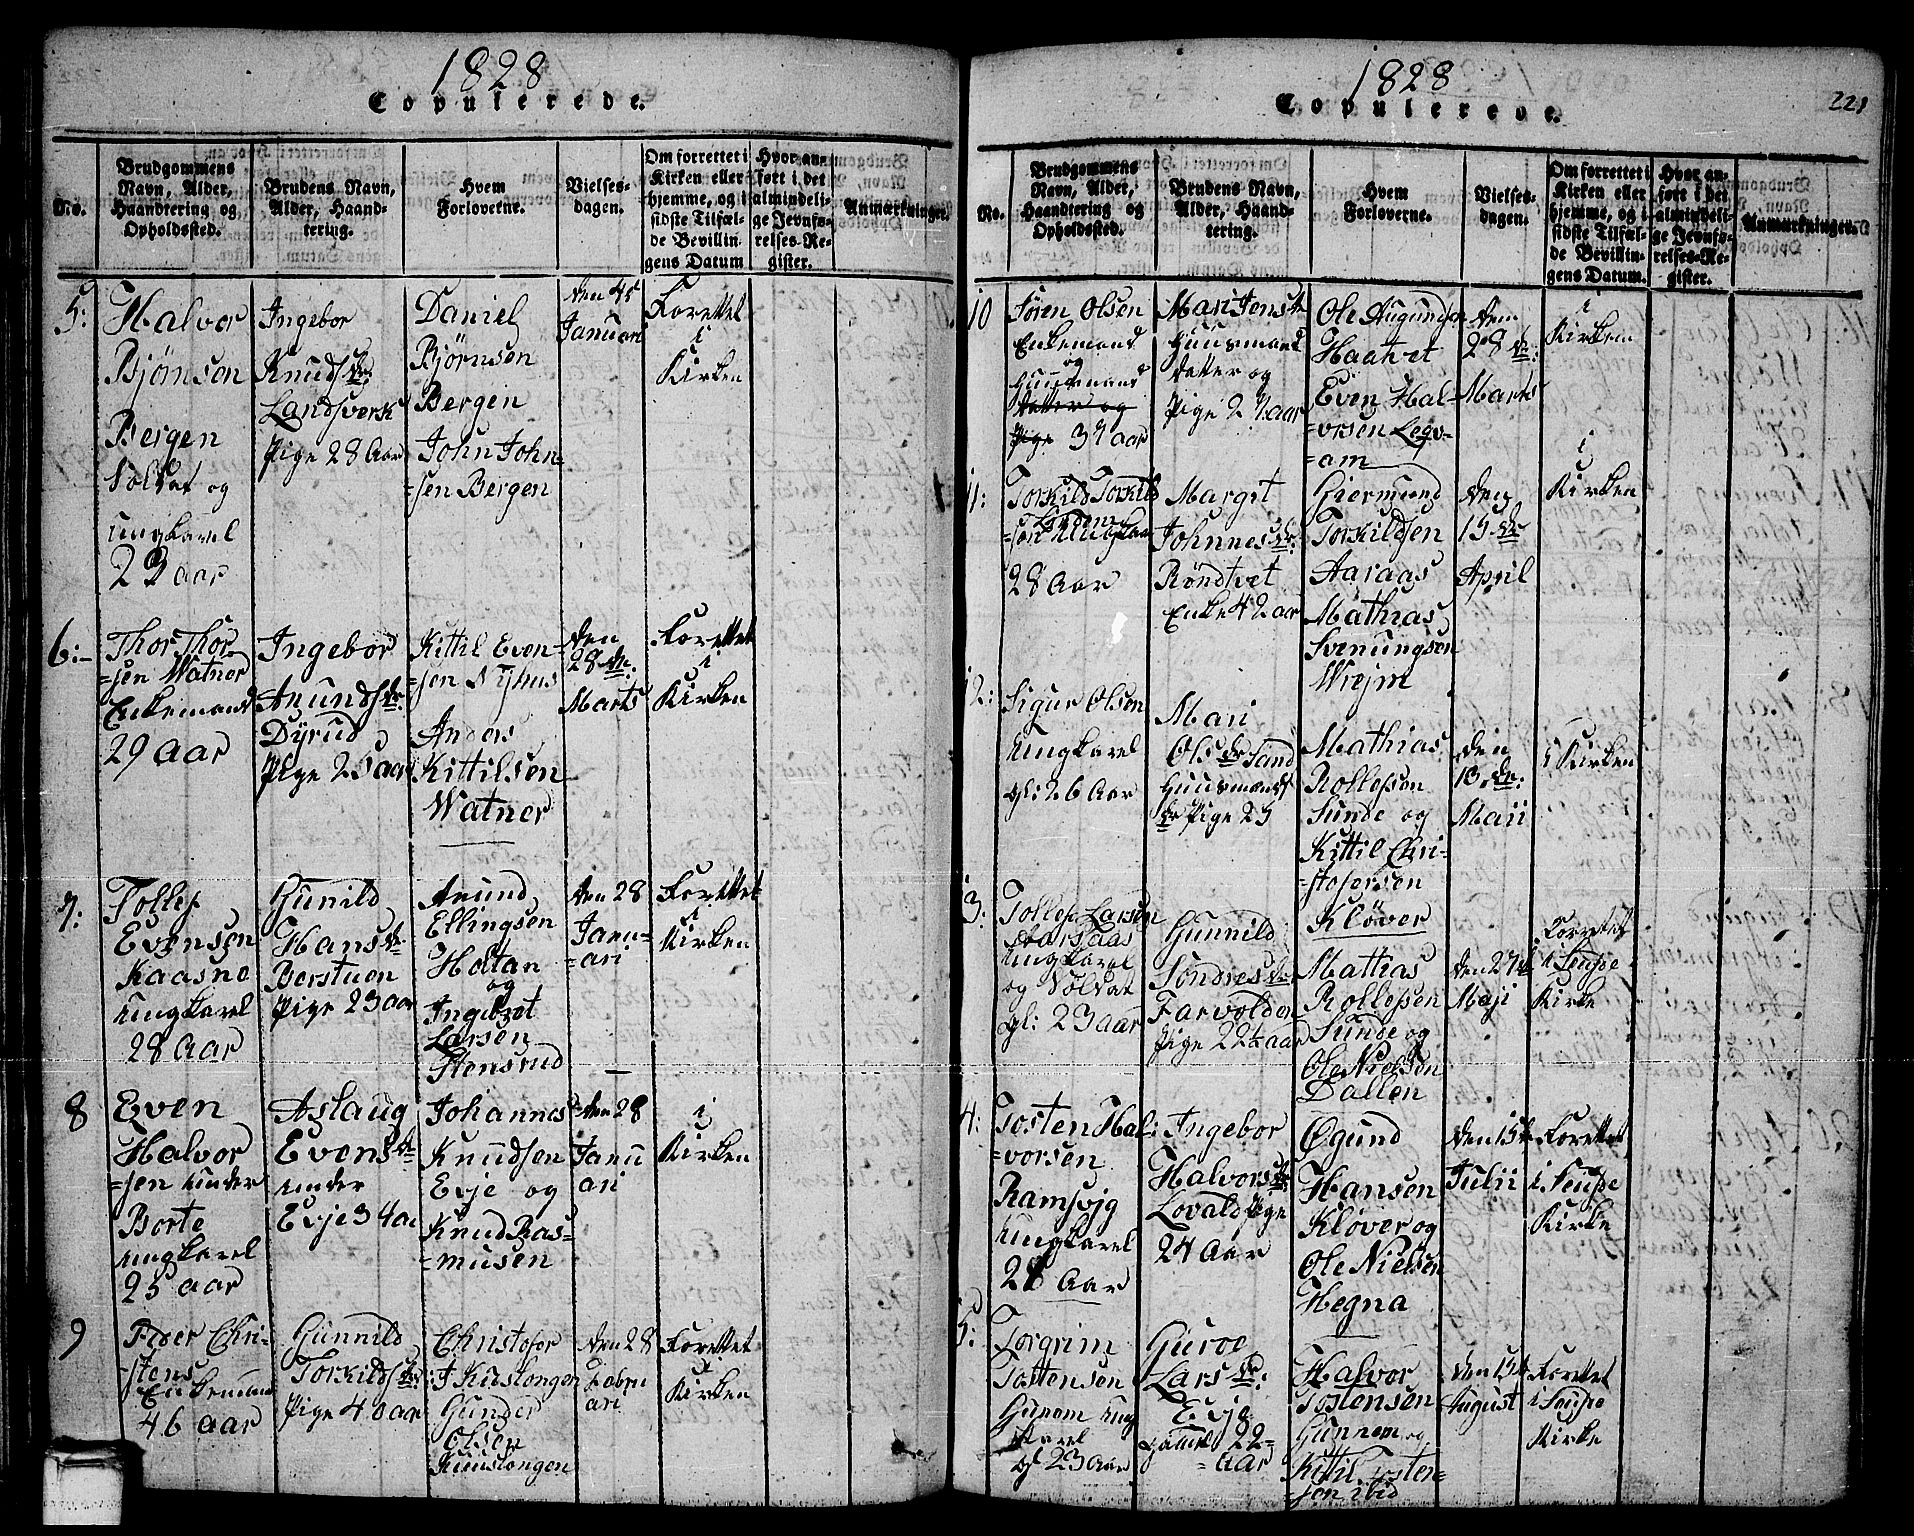 1828
Copulerede.
No.
Brudgommens
Navn, Alder,
Haandtering og
Opholdssted.
Brudens Navn,
Alder, Haand-
tering.
Hvem
Forloverne.
Vielses-
dagen.
Om forrettet i
Kirken eller
hjemme, og i
sidste Tilfæl-
de Bevillin
gens Datum
Hvor an-
ført i det
almindeli-
ge Jevnfø-
relses-Re-
gister.
Anmærkninger.
5:
Halvor
Bjørnsen
Bergen
Soldat og
ungkarel
23 aar
Ingebor
Knuds dr.
Landsverk
Pige 28 Aar
Daniel
Bjørnsen
Bergen
John John=
=sen Bergen
Januari
Forettet
i
Kirken
6:-
Thor Thor
=sen Watner
Enkemand
29 Aar
Ingebor
Anunds dr.
Dyrud
Pige 25 aar
Kittil Even=
=sen Nyhus
Anders
Kittilsen
Watner
den
28 de.
Marts
Forettet
i
Kirken
7:
Tollef
Evensen
Kaasne
ungkarel
28 aar
Gunild
Hans dr.
Borstuen
Pige 23 aar
Anund
Ellingsen
Holtan
og
Ingebret
Larsen
Stensrud
den 28
Janu=
=ari
Forettet
i
Kirken
8
Even
Halvor
=sen under
Borte
ungkarel
25 aar
Aslaug
Evens dr
under
Evje 34 a
Johannes
Knudsen
Evje og
Knud Ras=
=musen
den 28
Janu
ari
i
Kirken
9
Peder Chri=
=stens
Enkemand
46 aar
Gunnild
Torkilds dr:
Pige 40 aar
Christofor
Gunder
Olsen
den 28
Febru
ari
Forettet
i
Kirken
1828
Copulerede.
221
No.
Brudgommens
Navn, Alder,
Haandtering og
Opholdssted.
Brudens Navn,
Alder, Haand-
tering.
Hvem
Forloverne.
Vielses-
dagen.
Om forrettet i
Kirken eller
hjemme, og i
sidste Tilfæl-
de Bevillin-
gens Datum.
Hvor an-
ført i det
almindeli-
ge Jevnfø-
relses-Re-
gister.
Anmærkninger.
10
Søren Olsen
Enkemand
og
Huusmand
datter og
Pige 37 aar
Mari Jens dr
Huusmands
datter og
Pige 27 aar
Ole Augundsen
Haatvet
Even Hal=
=vorsen Legv=
=am
den
28 de:
Marts
i
Kirken
11:
Torkild Torkilds
=sen
28 Aar
Margit
Johnnes dr:
Røndtvet
Enke 42 aar
Giermund
Torkildsen
Aaraas
Mathias
Svenungsen
Wrejm
den
15 de
April
i
Kirken
12:
Sigur Olsen
ungkarel
gl: 26 Aar
Mari
Ols dr Sand
Huusmands
dr Pige 25
Mathias
Rollefsen
Sunde og
Kittil Chri=
=stofersen
Kløver
den
18 de:
Maii
i Kirken
3:
Tollef Larsen
ungkarel
og Soldat
gl: 23 aar
Gunnild
Søndres dr
Farvolden
Pige 22½ aar
Mathias
Rollefsen
Sunde og
Ole Nielsen
Dallen
den 27 de
Maji
Forrettet
i Seufde
Kirke
4:
Tosten Hal:
=vorsen
Ramsvig
ungkarel
28 Aar
Ingebor
Halvors dr
Lovald Pige
24 Aar
Øgund
Hansen
Kløver og
Ole Nielsen
Hegna
den 15 de
Julii
Forettet
i Seufde
Kirke
5:
Torgrim
Tostensen
Gunem ung
karel
gl 23 Aar
Gurve
Lars dr:
Evje
gammel 22=
=aar
Halvor
Tostensen
Gunnem og
Kittil Tosten=
sen ibid
den 15 de
August
Forettet
i Seufde
Kirke